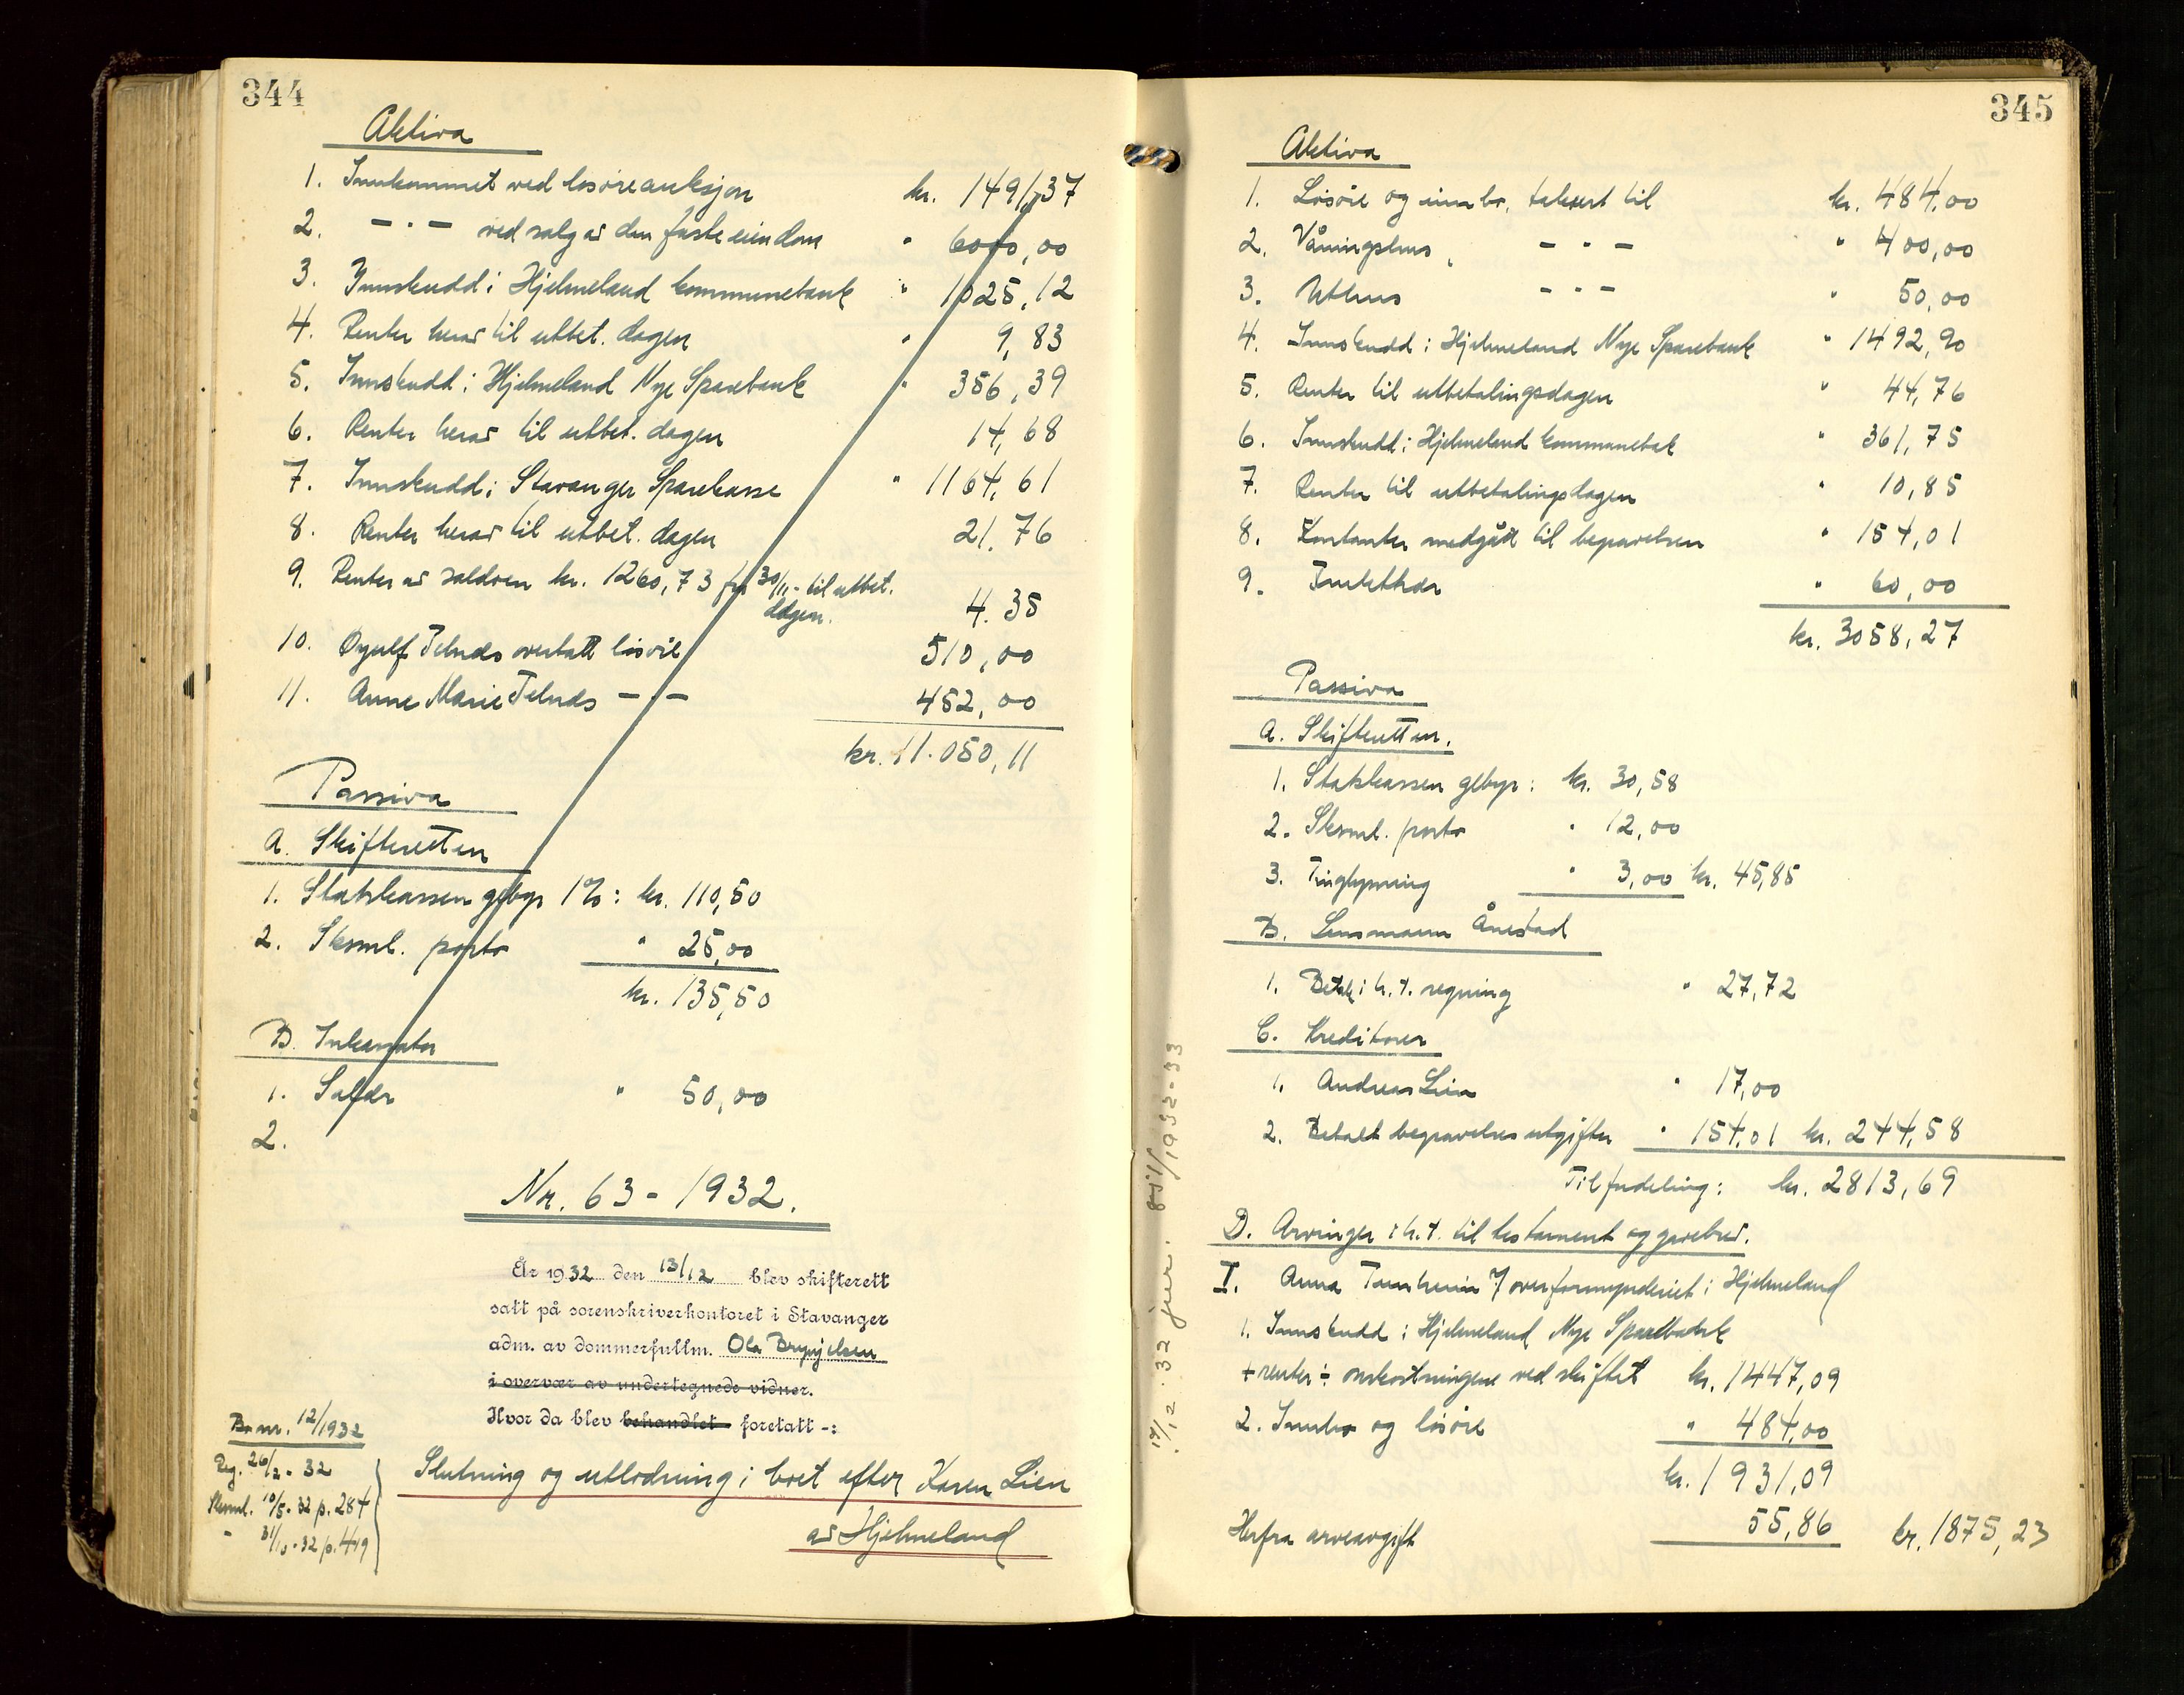 344
Aktiva
1. Innkommet ved løsøreauksjon kr. 1491,37
2. — " — ved salg av den faste eiendom " 6000,00
3. Innskudd i Hjelmeland kommunebank " 1025,12
4. Renter herav til utbet. dagen " 9,83
5. Innskudd i Hjelmeland Nye Sparebank " 356,39
6. Renter herav til utbet. dagen 14,68
7. Innskudd i Stavanger Sparekasse " 1164,61
8. Renter herav til utbet. dagen 21.76
9. Renter av saldoen kr. 1260,73 fra 30/11 - til utbet. dagen. 4.35
10. Øyulf Telnes overtatt løsøre 510,00
11. Anne Marie Telnes — " — 452,00
kr. 11.050,11
Passiva
A. Skifteretten
1. Statskassen gebyr 1%: kr. 110,50
2. Skrml. porto " 25,00
kr. 135,50
B. Inkassator
1. Salær " 50,00
2.
Nr. 63 - 1932.
År 1932 den 13/12 blev skifterett
satt på sorenskriverkontoret i Stavanger
adm. av dommerfullm. Ola Brynjelsen
i overvær av undertegnede vidner.
Hvor da blev behandlet foretatt -:
Slutning og utlodning i boet efter Karen Lien
av Hjelmeland
Bo nr. 12/1932
Reg. 26/2 - 32
Skrml. 10/5 - 32 p. 284
" 31/10 - 32 p. 449
345
Aktiva
1. Løsøre og innbo, taksert til kr. 484,00
2. Våningshus, — " — " 400,00
3. Uthus — " — " 50,00
4. Innskudd i Hjelmeland Nye Sparebank " 1492,90
5. Renter til utbetalingsdagen " 44,76
6. Innskudd i Hjelmeland kommunebak " 361,75
7. Renter til utbetalingsdagen " 10,85
8. Kontanter medgått til begravelsen " 154,01
9. " 60,00
kr. 3058,27
Passiva
A. Skifteretten.
1. Statskassen gebyr: kr. 30,58
2. Skrml. porto " 12,00
3. Tinglysning " 3,00 kr. 45,85
B. Lensmann Ånestad
1. Betalt i h. t. regning " 27,72
C. Kreditorer
1. Andreas Lien " 17,00
2. Betalt begravelsesutgifter " 154,01 kr. 244,58
Til fordeling: kr. 2813,69
D. Arvinger i h. t. til testament og gavebrev.
I. Anna overformynderiet i Hjelmeland
1. Innskudd i Hjelmeland Nye Sparebank
+ renter ÷ omkostningene ved skiftet kr. 1447,09
2. Innbo og løsøre " 484,00
kr. 1931,09
Herfra arveavgift 55,86 kr. 1875,23
17/12.32 jnr. 851/1932-33